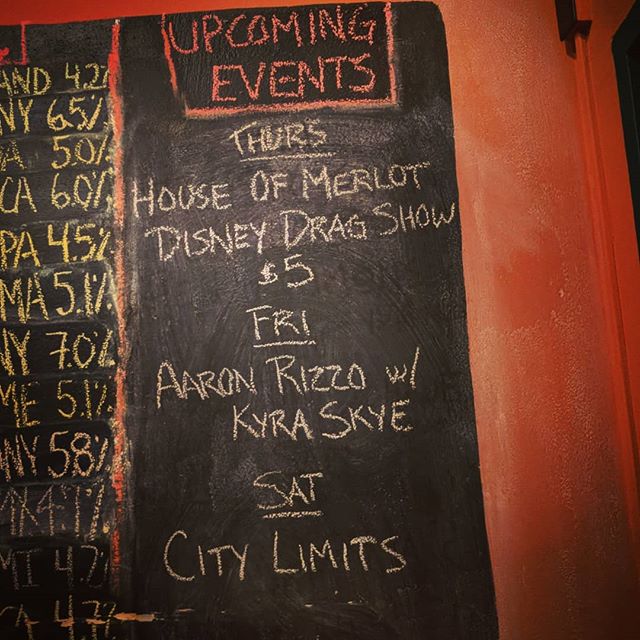 UPCOMING
EVENTS
THURS
HOUSE OF MERLOT
DISNEY DRAG SHOW
$5
FRI
AARON RIZZO W/
KYRA SKYE
SAT
CITY LIMITS
AND 4.2%
NY 6.5%
A 5.0%
CA 6.0%
PA 4.5%
MA 5.1%
NY 7.0%
ME 5.1%
NY 5.8%
4.7%
MI 4.2%
4.7%